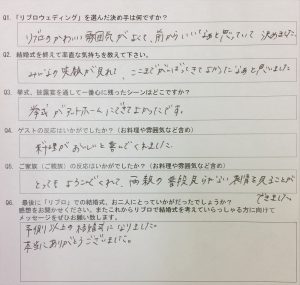 Q1.「リブロウェディング」を選んだ決め手は何ですか?
リブロのかわいい雰囲気がよくて、前からいいなぁと思っていて決めました。
Q2. 結婚式を終えて率直な気持ちを教えて下さい。
みんなの笑顔が見れて、ここまでがんばってきてよかったなぁと思いました。
Q3. 挙式、披露宴を通して一番心に残ったシーンはどこですか?
挙式がアットホームにできてよかったです。
Q4. ゲストの反応はいかがでしたか?(お料理や雰囲気など含め)
料理がおいしいと喜んでくれました。
Q5. ご家族(ご親族)の反応はいかがでしたか?(お料理や雰囲気など含め)
とってもよろこんでくれて、両親の普段見られない表情を見ることができました。
Q6. 最後に「リブロ」での結婚式、お二人にとっていかがだったでしょうか?
感想をお聞かせください。またこれからリブロで結婚式を考えていらっしゃる方に向けて
メッセージをぜひお願い致します。
予想以上の結婚式になりました。
本当にありがとうございました。